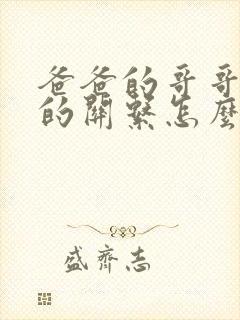 爸爸的哥哥
的關繫怎麼
盛齊志